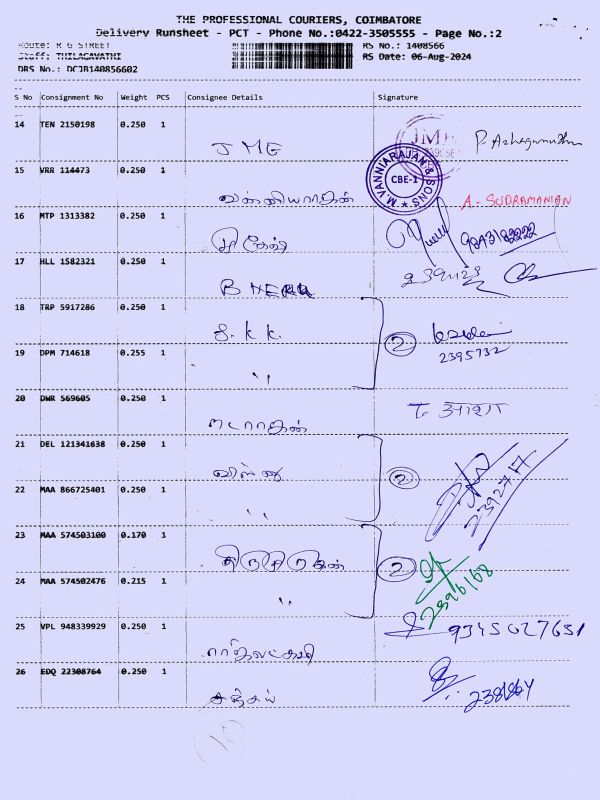 THE PROFESSIONAL COURIERS, COIMBATORE
Delivery Runsheet - PCT - Phone No.:0422-3505555 - Page No.:2
Route: R G STREET
Staff: THILAGAVATHI
DRS No.: DCJB140856602
RS No.: 1408566
RS Date: 06-Aug-2024
S No Consignment No Weight PCS Consignee Details Signature
14 TEN 2150198 0.250 1
JMG
15 VRR 114473 0.250 1
வன்னியராஜன்
M.VANNIARAJAN & SONS CBE-1
A. SUBRAMANIAN
16 MTP 1313382 0.250 1
9843182222
17 HLL 1582321 0.250 1
18 TRP 5917286 0.250 1
S. K K. 2
19 DPM 714618 0.255 1
" 2395732
20 DWR 569605 0.250 1
நடராஜன்
21 DEL 121341638 0.250 1
விஷ்ணு 2
22 MAA 866725401 0.250 1
" 2392717
23 MAA 574503100 0.170 1
2
24 MAA 574502476 0.215 1
" 2396168
25 VPL 948339929 0.250 1
9345027651
26 EDQ 22308764 0.250 1
சஞ்சய்
10